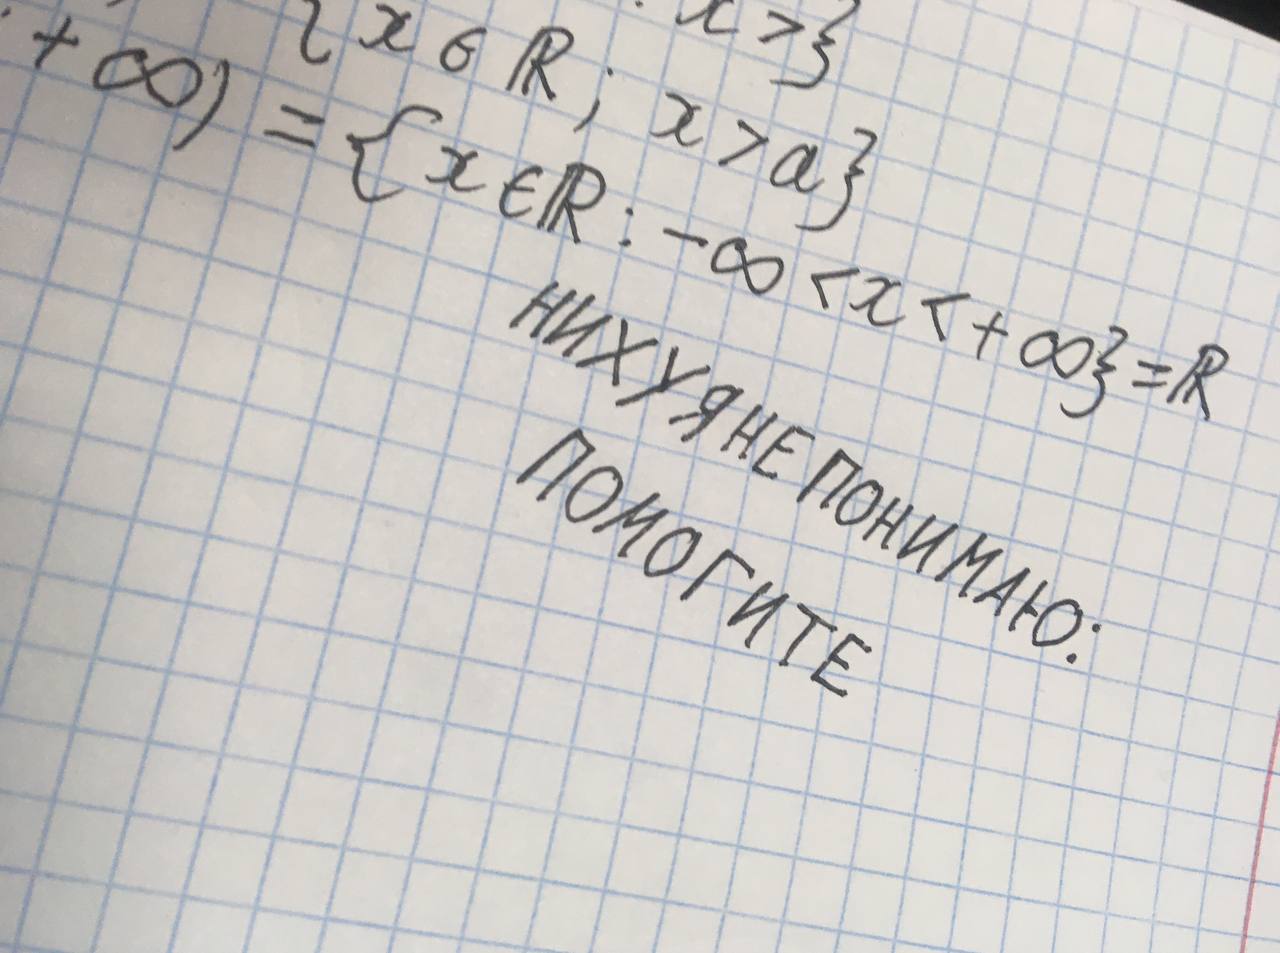 x>}
{x ∈ ℝ; x > a}
; +∞) = {x ∈ ℝ : -∞ < x < +∞} = ℝ
НИХУЯ НЕ ПОНИМАЮ:
ПОМОГИТЕ